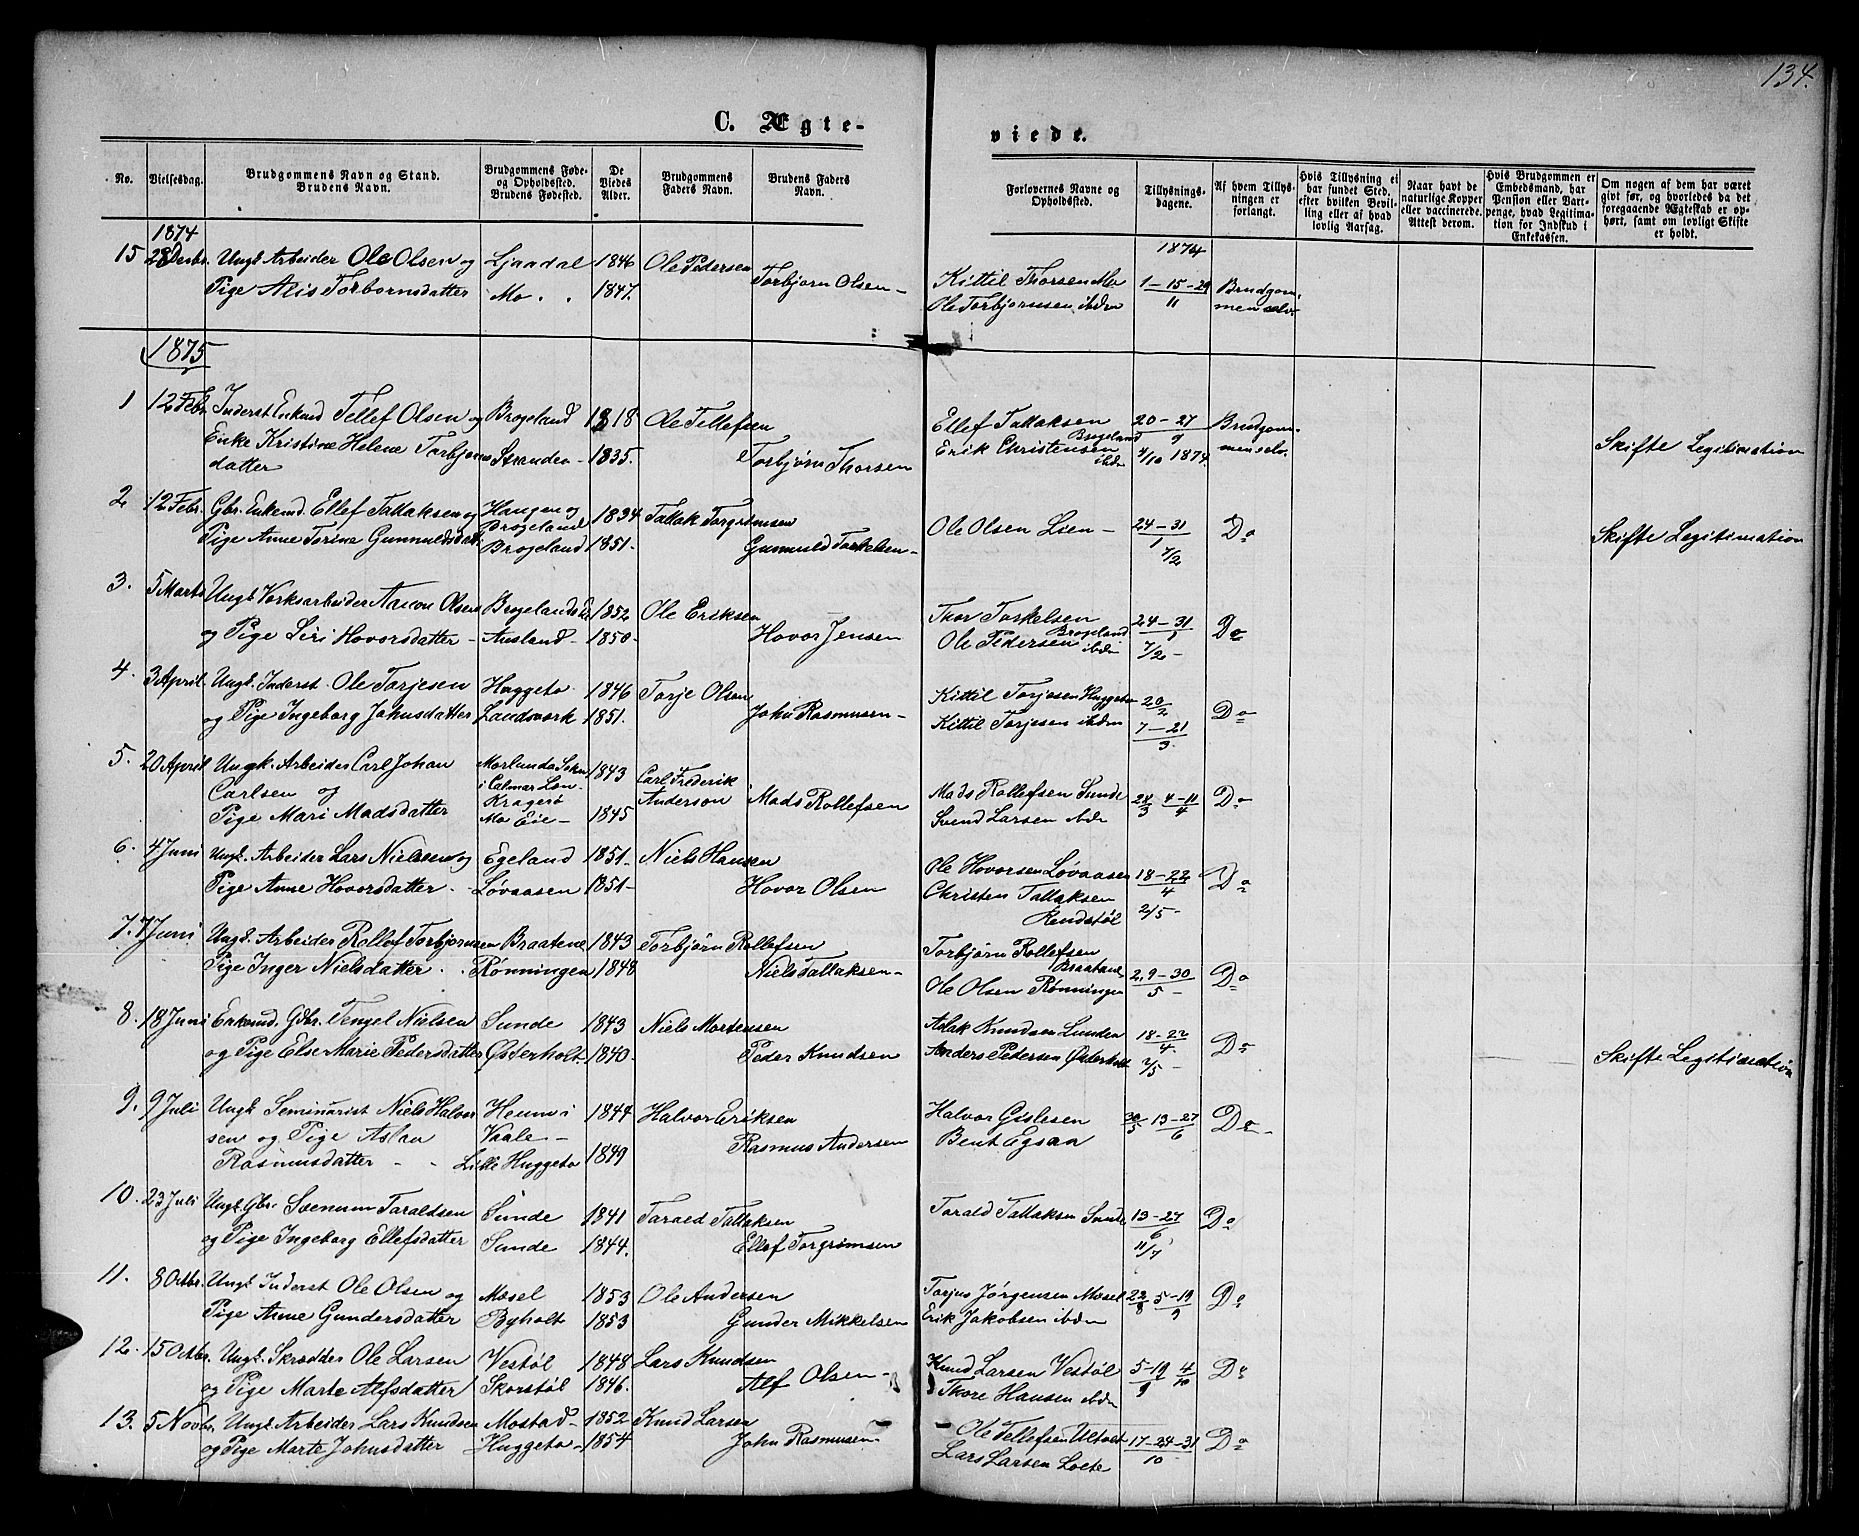 134.
C. Ægte-
viede.
No.
Vielsesdag.
Brudgommens Navn og Stand.
Brudens Navn.
Brudgommens Føde-
og Opholdsted.
Brudens Fødested.
De
Viedes
Alder.
Brudgommens
Faders Navn.
Brudens Faders
Navn.
Forlovernes Navne og
Opholdsted.
Tillysnings-
dagene.
Af hvem Tillys-
ningen er
forlangt.
Hvis Tillysning ei
har fundet Sted,
efter hvilken Bevil-
ling eller af hvad
lovlig Aarsag.
Naar havt de
naturlige Kopper
eller vaccinerede.
Attest derom.
Hvis Brudgommen er
Embedsmand, har
Pension eller Vart-
penge, hvad Legitima-
tion for Indskud i
Enkekassen.
Om nogen af dem har været
givt før, og hvorledes da det
foregaaende Ægteskab er op-
hørt, samt om lovligt Skifte
er holdt.
1874
1874
15 28 Decbr. Ungk. Arbeider Ole Olsen og Ljaadal 1846 Ole Pedersen Kittil Thorsen Mo 1–15–29 Brudgom-
Pige Asis Torbornsdatter Mo 1847. Torbjørn Olsen – Ole Torbjørnsen ibdm 11 men selv
1875
1 12 Febr. Inderst Enkmd Tellef Olsen og Brogeland 1818 Ole Tellefsen Ellef Tallaksen 20–27 Brudgom-
Brogeland 9
Enke Kristine Helene Torbjørns Stranden – 1835. Torbjørn Thorsen Erik Christensen ibdm 4/10 1874. men selv. Skifte Legitimation
datter
2 12 Febr. Gbr. Enkemd. Ellef Tallaksen og Haugen og 1834 Tallak Torgrimsen Ole Olsen Lien – 24–31 Do Skifte Legitimation
Brogeland 1
Pige Anne Torine Gunnuldsdat. Brogeland 1851. Gunnuld Torkelsen – 7/2
3. 5 Marts Ungk. Verksarbeider Aanon Olsen Brogeland 1852 Ole Eriksen Thor Torkelsen 24–31 Do
Brogeland 1
og Pige Siri Hovorsdatter – Ausland – 1850 – Hovor Jensen Ole Pedersen ibdm 7/2 –
4. 3 April. Ungk. Inderst. Ole Torjesen Huggeto 1846 Torje Olsen Kittil Torjesen Huggeto 20/2 Do
og Pige Ingeborg Johnsdatter Landsverk 1851. John Rasmusen – Kittil Torjesen ibdm 7–21
3.
5. 20 April Ungk. Arbeider Carl Johan Mørlunda Sokn 1843 Carl Frederik
Carlsen og i Calmar Lön Anderson Mads Rollefsen Mads Rollefsen Sunde 28/3 4–11/4 Do
Kragerø
Pige Mari Madsdatter Mo Eie – 1845 Svend Larsen ibdm
6. 4 Juni Ungk. Arbeider Lars Nielssen og Egeland 1851. Niels Hansen Ole Hovorsen Løvaasen 18–22 Do
4
Pige Anne Hovorsdatter. Løvaasen 1851 – Hovor Olsen Christen Tallaksen 2/5 –
Rendstøl
7. 7 Juni Ungk. Arbeider Rollef Torbjørnsen Braatene 1843 Torbjørn Rollefsen Torbjørn Rollefsen
Braatene
Pige Inger Nielsdatter. Rønningen 1848 Niels Tallaksen – Ole Olsen Rønningen 2, 9–30 Do
5 –
8. 18 Juni Enkemd. Gdbr. Tengel Nielsen Sunde 1843 Niels Mortensen Aslak Knudsen Lunden 18–22 Do
4.
og Pige Else Marie Pedersdatter Østerholt. 1840. Peder Knudsen Anders Pedersen Østerholt 2/5 – Skifte Legitimation
9. 9 Juli Ungk. Seminarist Niels Halvor Heum i 1844 Halvor Eriksen Halvor Gislesen 30/5 – 13–27/6 Do –
sen og Pige Aslau Vaale – Rasmus Andersen Bent Egsaa
Rasmusdatter – – Lille Huggeto 1849
10. 23 Juli Ungk. Gbr. Svenum Taraldsen Sunde 1841 Tarald Tallaksen Tarald Tallaksen Sunde 13–27 Do
6
og Pige Ingeborg Ellefsdatter Sunde 1844. Ellef Torgrimsen 11/7
11. 8 Octbr. Ungk. Inderst Ole Olsen og Mosel 1853 Ole Andersen Torjus Jørgensen Mosel 22/8 5–19/9 Do
Pige Anne Gundersdatter Byholt 1853 Gunder Mikkelsen Erik Jakobsen ibdm
12. 15 Octbr. Ungk. Skrædder Ole Larsen Vestøl 1848 Lars Knudsen Knud Larsen Vestøl 5–19/9 4/10 Do
og Pige Marte Alfsdatter Skorstøl 1846. Alf Olsen – Thore Hansen ibdm
13. 5 Novbr. Ungk. Arbeider Lars Knudsen Mostad – 1852 Knud Larsen Ole Tellefsen Ultveit 17–24–31 Do
og Pige Marte Johnsdatter Huggeto – 1854 John Rasmusen – Lars Larsen Loete 10